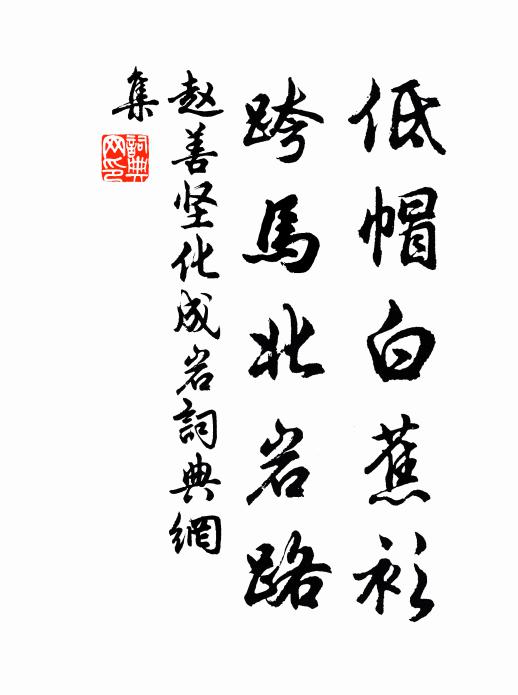 低帽白蕉衫
跨馬北岩路
赵善坚化成岩詞典網
集
詞典
网印